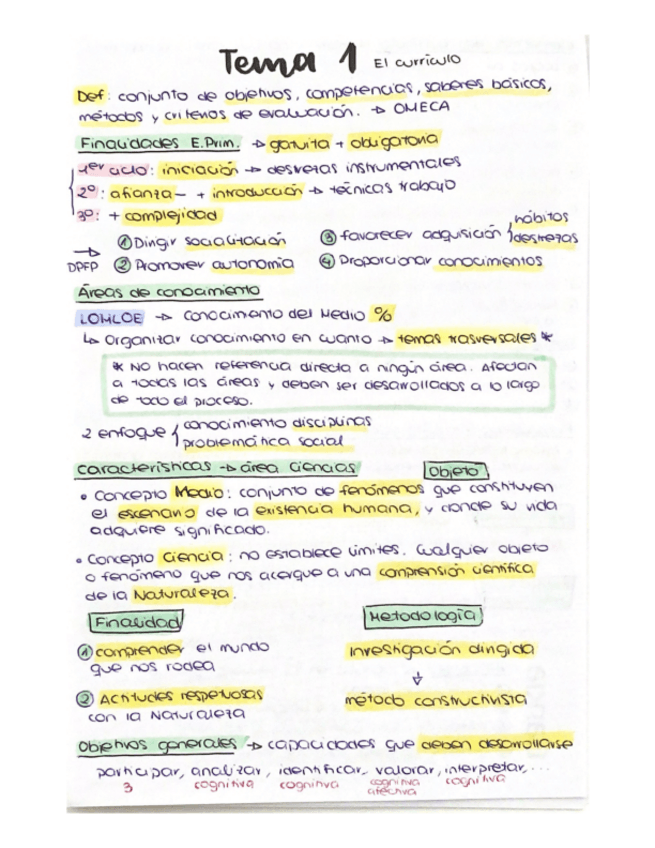 Tema 1 El currículo
Def: conjunto de objetivos, competencias, saberes básicos,
métodos y criterios de evaluación. → OMECA
Finalidades E.Prim. → gratuita + obligatoria
1er ciclo: iniciación → destrezas instrumentales
2º: afianza- + introducción → técnicas trabajo
3º: + complejidad
→ DPFP
① Dirigir socialización
② Promover autonomía
③ favorecer adquisición { hábitos
destrezas
④ Proporcionar conocimientos
Áreas de conocimiento
LOMLOE → Conocimiento del Medio %
↳ Organizar conocimiento en cuanto → temas trasversales *
* No hacen referencia directa a ningún área. Afectan
a todas las áreas y deben ser desarrollados a lo largo
de todo el proceso.
2 enfoque { conocimiento disciplinas
problemática social
Características → área Ciencias
Objeto
• Concepto Medio: conjunto de fenómenos que constituyen
el escenario de la existencia humana, y donde su vida
adquiere significado.
• Concepto Ciencia: no establece límites. Cualquier objeto
o fenómeno que nos acerque a una comprensión científica
de la Naturaleza.
Finalidad
① comprender el mundo
que nos rodea
② Actitudes respetuosas
con la Naturaleza
Metodología
investigación dirigida
↓
método constructivista
Objetivos generales → capacidades que deben desarrollarse
participar, analizar, identificar, valorar, interpretar, ...
3 cognitiva cognitiva cognitiva cognitiva
afectiva